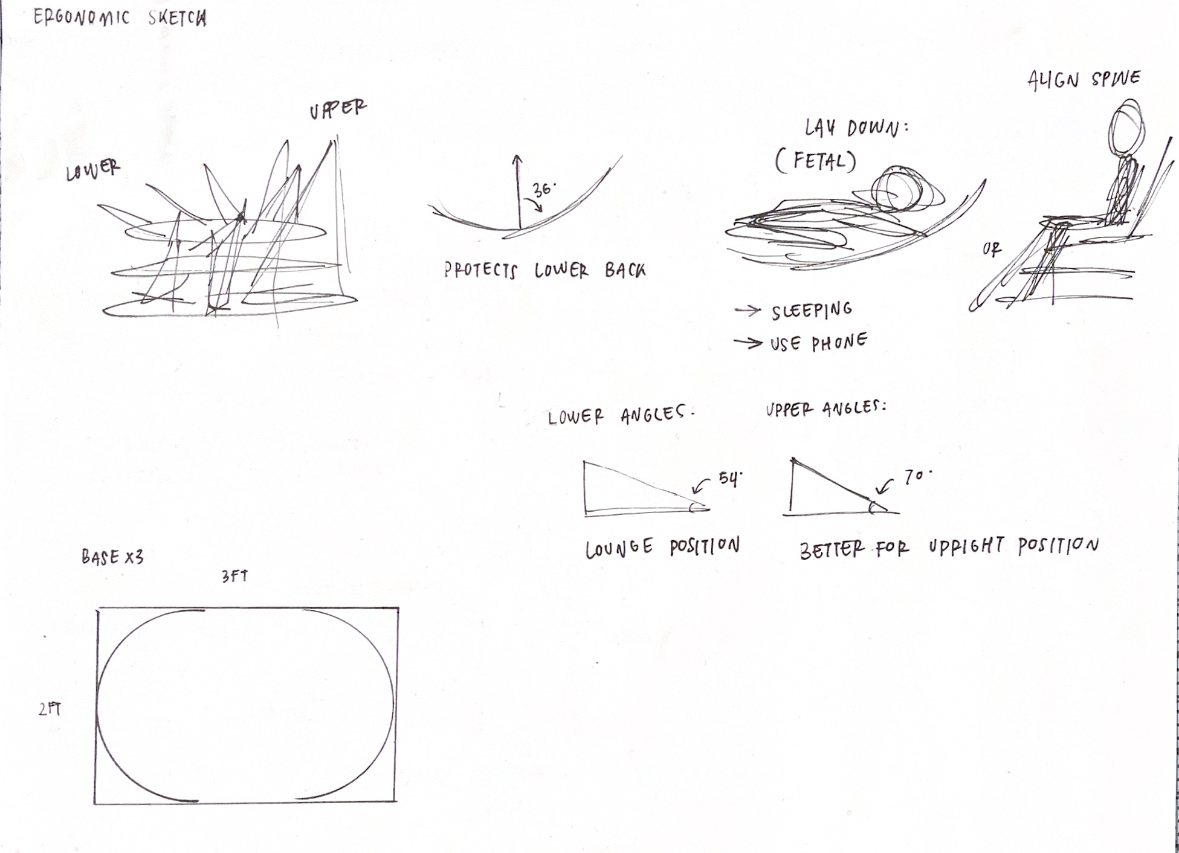 ERGONOMIC SKETCH
UPPER
LOWER
36°
PROTECTS LOWER BACK
LAY DOWN:
(FETAL)
→ SLEEPING
→ USE PHONE
ALIGN SPINE
OR
LOWER ANGLES:
54°
LOUNGE POSITION
UPPER ANGLES:
70°
BETTER FOR UPRIGHT POSITION
BASE X3
3FT
2FT